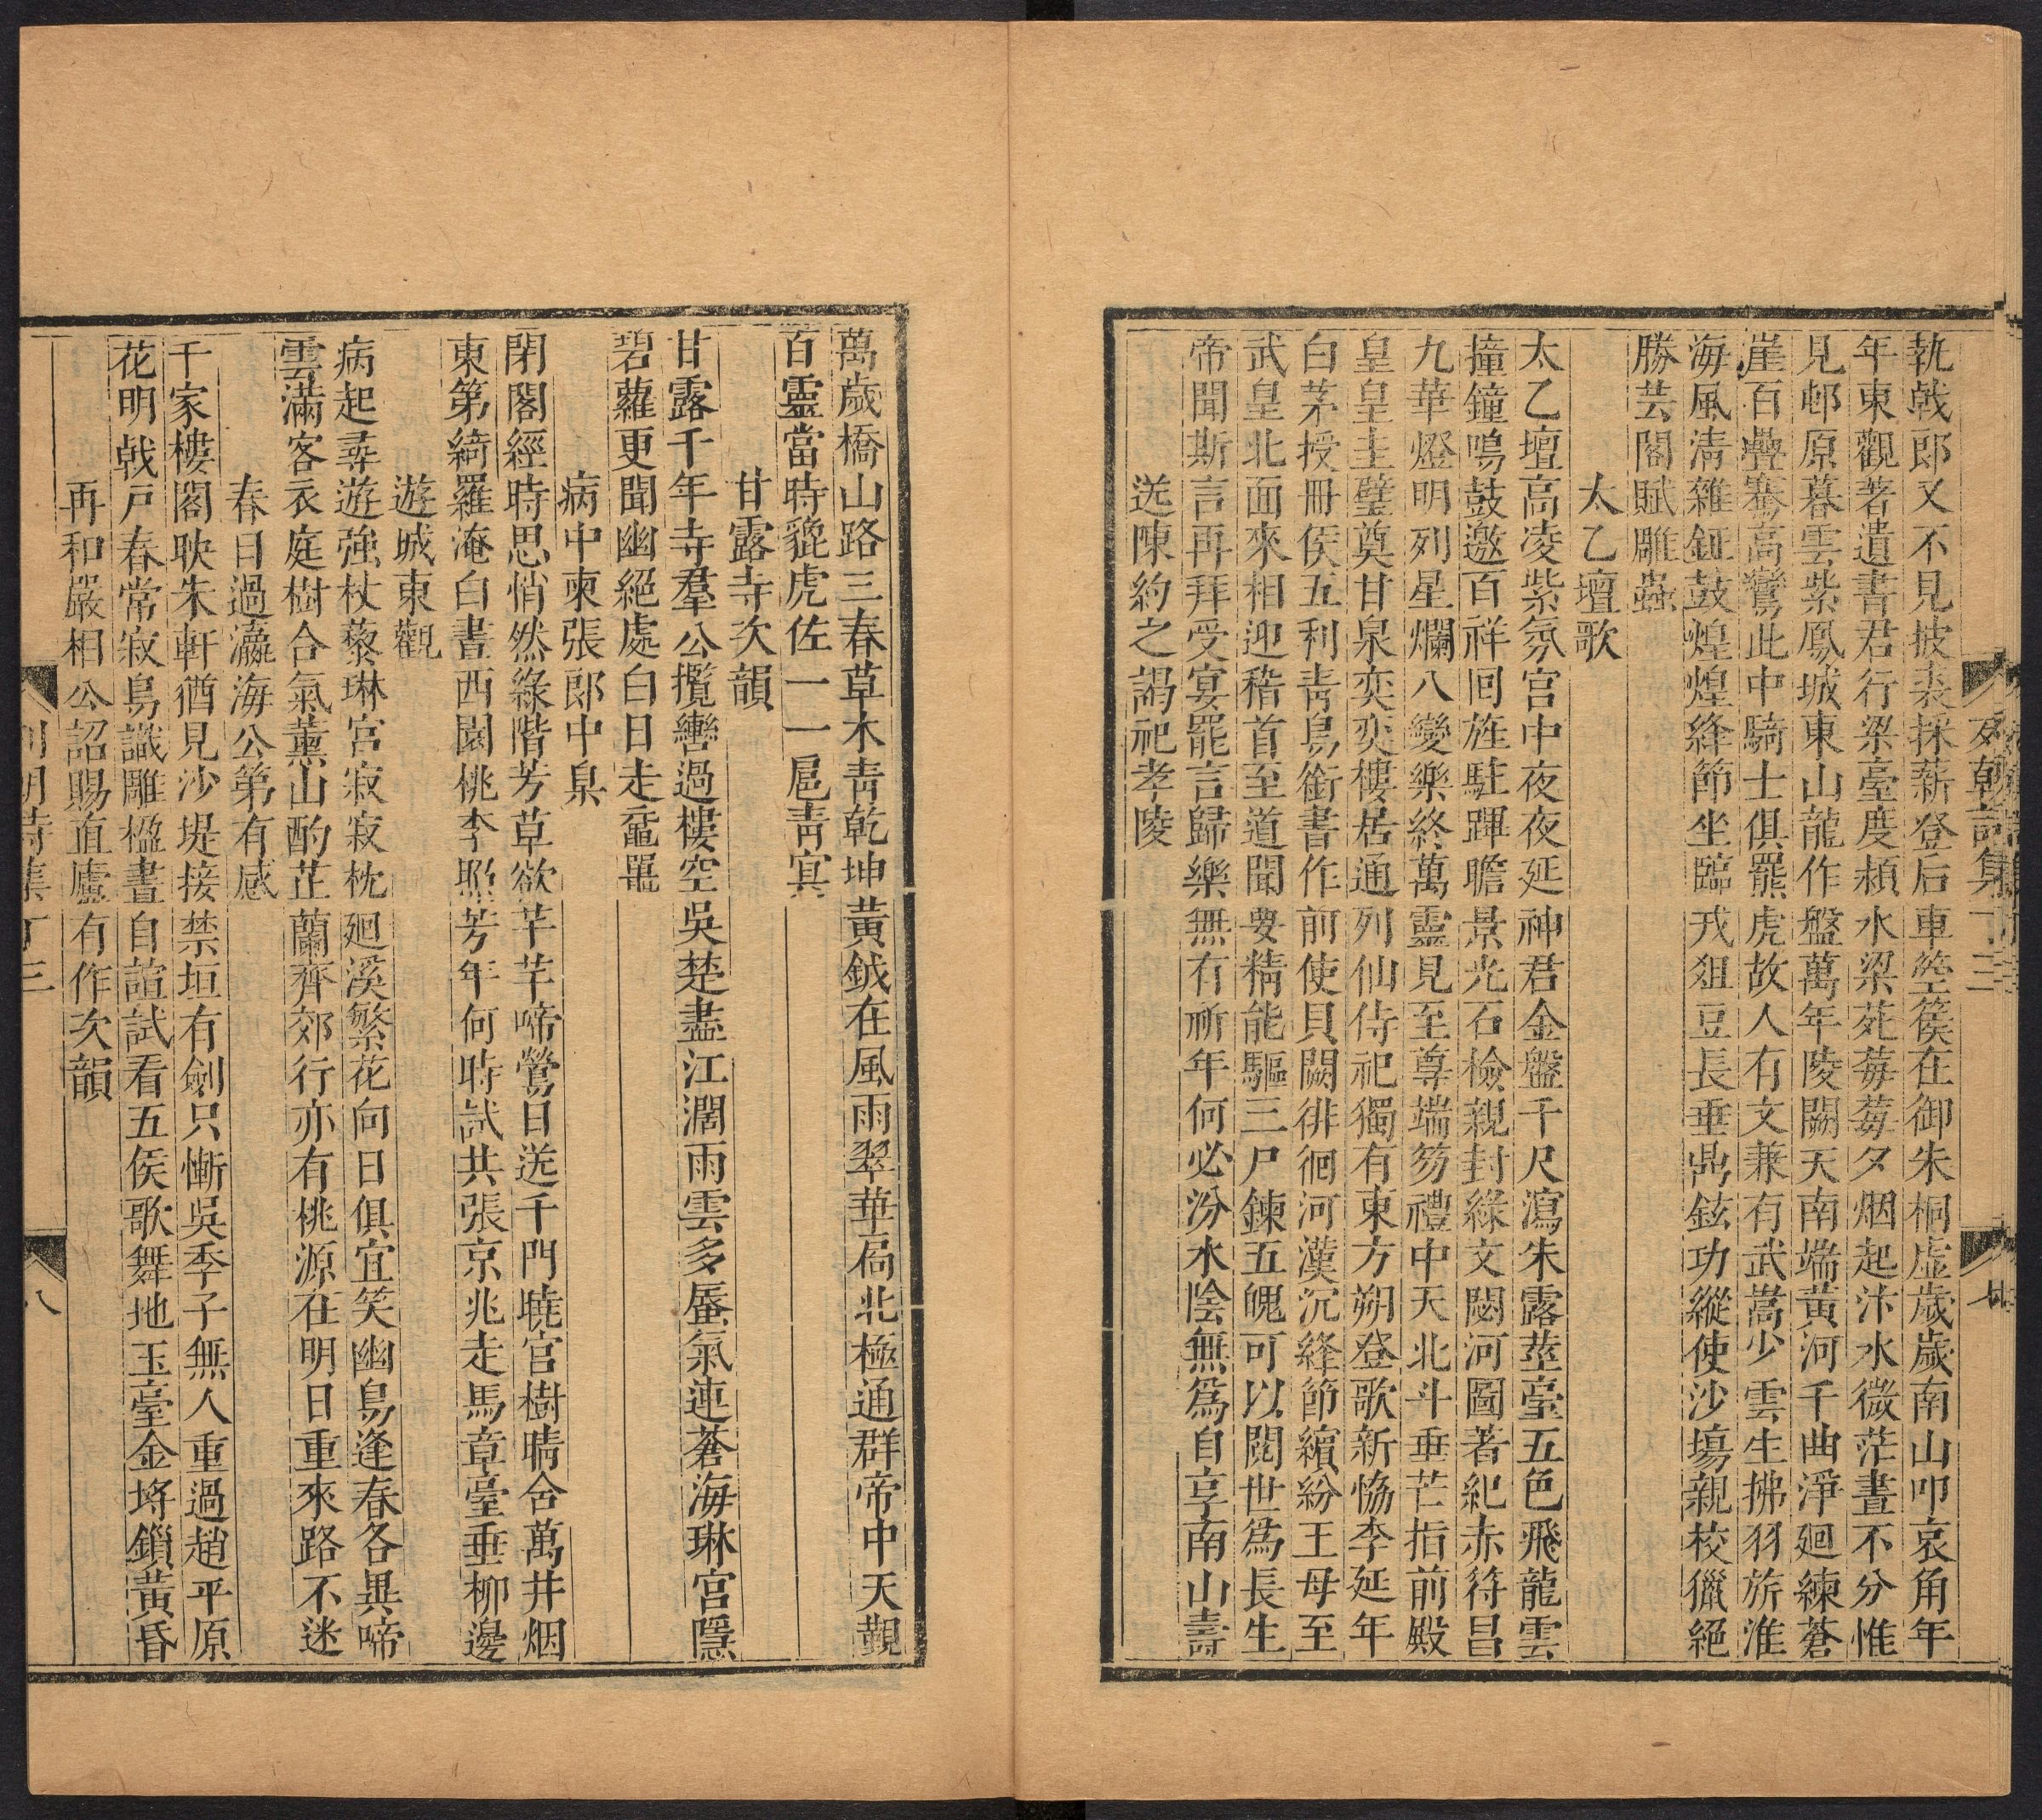 執戟郎又不見披裘採薪登后車箜篌在御朱桐虛歲歲南山叩哀角年
年東觀著遺書君行梁臺度潁水梁苑莓莓夕烟起汴水微茫晝不分惟
見邨原暮雲紫鳳城東山龍作盤萬年陵闕天南端黃河千曲淨廻練蒼
崖百疊騫高鸞此中騎士俱羆虎故人有文兼有武嵩少雲生拂羽旂淮
海風清雜鉦鼓煌煌絳節坐臨戎俎豆長垂鼎鉉功縱使沙塲親校獵絕
勝芸閣賦雕蟲
太乙壇歌
太乙壇高凌紫氛宮中夜夜延神君金盤千尺瀉朱露莖臺五色飛龍雲
撞鐘鳴鼓邀百祥囘旌駐蹕瞻景光石檢親封綠文閟河圖著紀赤符昌
九華燈明列星爛八變樂終萬靈見至尊端笏禮中天北斗垂芒指前殿
皇皇圭璧奠甘泉奕奕樓居通列仙侍祀獨有東方朔登歌新恊李延年
白茅授冊侯五利靑鳥銜書作前使貝闕徘徊河漢沉絳節繽紛王母至
武皇北面來相迎稽首至道聞要精能驅三尸鍊五魄可以閱世爲長生
帝聞斯言再拜受宴罷言歸樂無有祈年何必汾水陰無爲自享南山壽
送陳約之謁祀孝陵
萬歲橋山路三春草木靑乾坤黃鉞在風雨翠華扃北極通群帝中天觀
百靈當時貔虎佐一一扈靑冥
甘露寺次韻
甘露千年寺羣公攬轡過樓空吳楚盡江濶雨雲多蜃氣連蒼海琳宮隱
碧蘿更聞幽絕處白日走黿鼉
病中柬張郎中臬
閉閣經時思悄然綠階芳草欲芊芊啼鶯日送千門曉宮樹晴含萬井烟
東第綺羅淹白晝西園桃李照芳年何時試共張京兆走馬章臺垂柳邊
遊城東觀
病起尋遊強杖藜琳宮寂寂枕廻溪繁花向日俱宜笑幽鳥逢春各異啼
雲滿客衣庭樹合氣薰山酌芷蘭齊郊行亦有桃源在明日重來路不迷
春日過瀛海公第有感
千家樓閣映朱軒猶見沙堤接禁垣有劍只慚吳季子無人重過趙平原
花明戟戶春常寂鳥識雕楹晝自諠試看五侯歌舞地玉臺金埒鎖黃昏
再和嚴相公詔賜直廬有作次韻
列朝詩集丁三
八